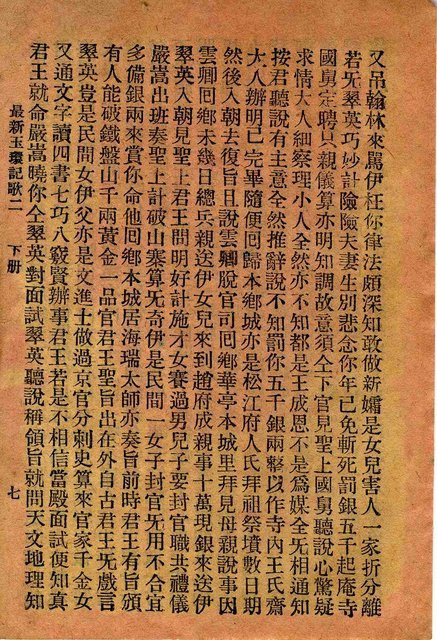 又吊翰林來罵伊枉你律法頗深知敢做新孀是女兒害人一家折分離
若旡翠英巧妙計險險夫妻生別悲念你年已免斬死罰銀五千起庵寺
國舅定聘只親儀算亦明知調故意須仝下官見聖上國舅聽說心驚疑
求情大人細察理小人全然亦不知都是王成恩不是爲媒全旡相通知
按君聽說有主意全然推辭說不知罰你五千銀兩整以作寺內王氏齋
大人辦明已完畢隨便回歸本鄉城亦是松江府人氏拜祖祭墳數日期
然後入朝去復旨且說雲卿脫官司回鄉華亭本城里拜見母親說事因
雲卿回鄉未幾日總兵親送伊女兒來到趙府成親事十萬現銀來送伊
翠英入朝見聖上君王問明好計施才女賽過男兒子要封官職共禮儀
嚴嵩出班奏聖上計破山寨算旡奇伊是民間一女子封官旡用不合宜
多備銀兩來賞你命他回鄉本城居海瑞太師亦奏旨前時君王有旨頒
有人能破鐵盤山千兩黃金一品官君王聖旨出在外自古君王旡戲言
翠英豈是民間女伊父亦是文進士做過京官分刺史算來官家千金女
又通文字讀四書七巧八竅賢辦事君王若是不相信當殿面試便知真
君王就命嚴嵩曉你仝翠英對面試翠英聽說稱領旨就問天文地理知
最新玉環記歌二 下册 七